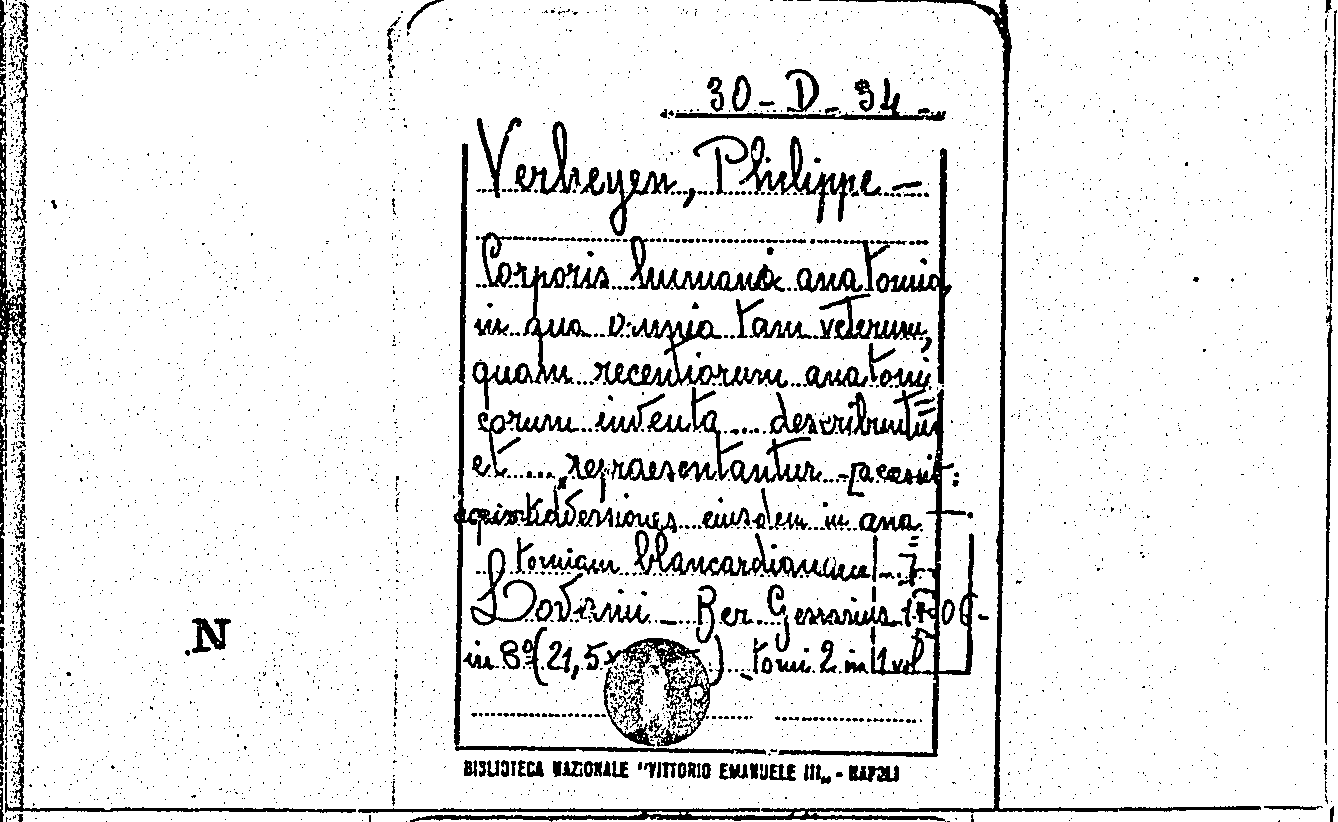 30 - D - 34 -
Verheyen, Philippe -
Corporis humani anatomia,
in qua omnia tam veterum,
quam recentiorum anatomi
corum inventa ... describuntur
et ... repraesentantur - [accessit:
eiusdem in ana
tomiam blancardianam] -
Lovanii - 1706 -
in 8º (21,5x ) tomi 2 in 1 vol
N
BIBLIOTECA NAZIONALE "VITTORIO EMANUELE III„ - NAPOLI